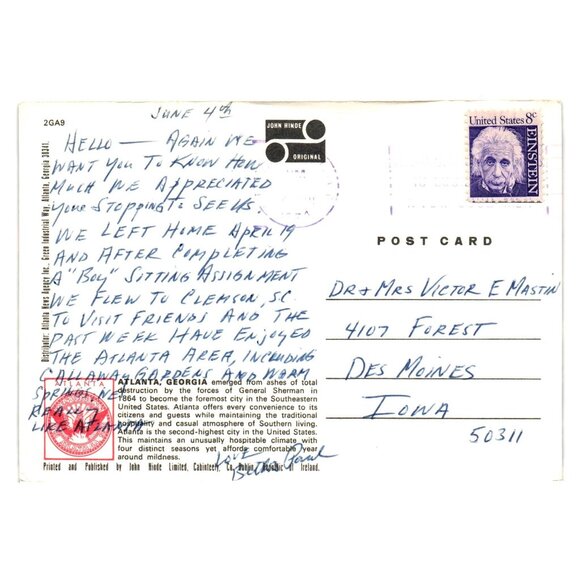 2GA9
JUNE 4th
JOHN HINDE
ORIGINAL
United States 8c
EINSTEIN
HELLO — AGAIN WE
WANT YOU TO KNOW HOW
MUCH WE APPRECIATED
YOUR STOPPING TO SEE US.
WE LEFT HOME APRIL 19
AND AFTER COMPLETING
A "BOY" SITTING ASSIGNMENT
WE FLEW TO CLEMSON, SC.
TO VISIT FRIENDS AND THE
PAST WEEK HAVE ENJOYED
THE ATLANTA AREA, INCLUDING
CALLAWAY GARDENS AND WARM
SPRINGS. WE
REALLY
LIKE ATLANTA
LOVE
POST CARD
DR & MRS VICTOR E MASTIN
4107 FOREST
DES MOINES
IOWA
50311
ATLANTA
ATLANTA, GEORGIA emerged from ashes of total
destruction by the forces of General Sherman in
1864 to become the foremost city in the Southeastern
United States. Atlanta offers every convenience to its
citizens and guests while maintaining the traditional
hospitality and casual atmosphere of Southern living.
Atlanta is the second-highest city in the United States.
This maintains an unusually hospitable climate with
four distinct seasons yet affords comfortable year
around mildness.
Printed and Published by John Hinde Limited, Cabinteely, Co. Dublin, Republic of Ireland.
Distributor: Atlanta News Agency Inc., Green Industrial Way, Atlanta, Georgia 30341.